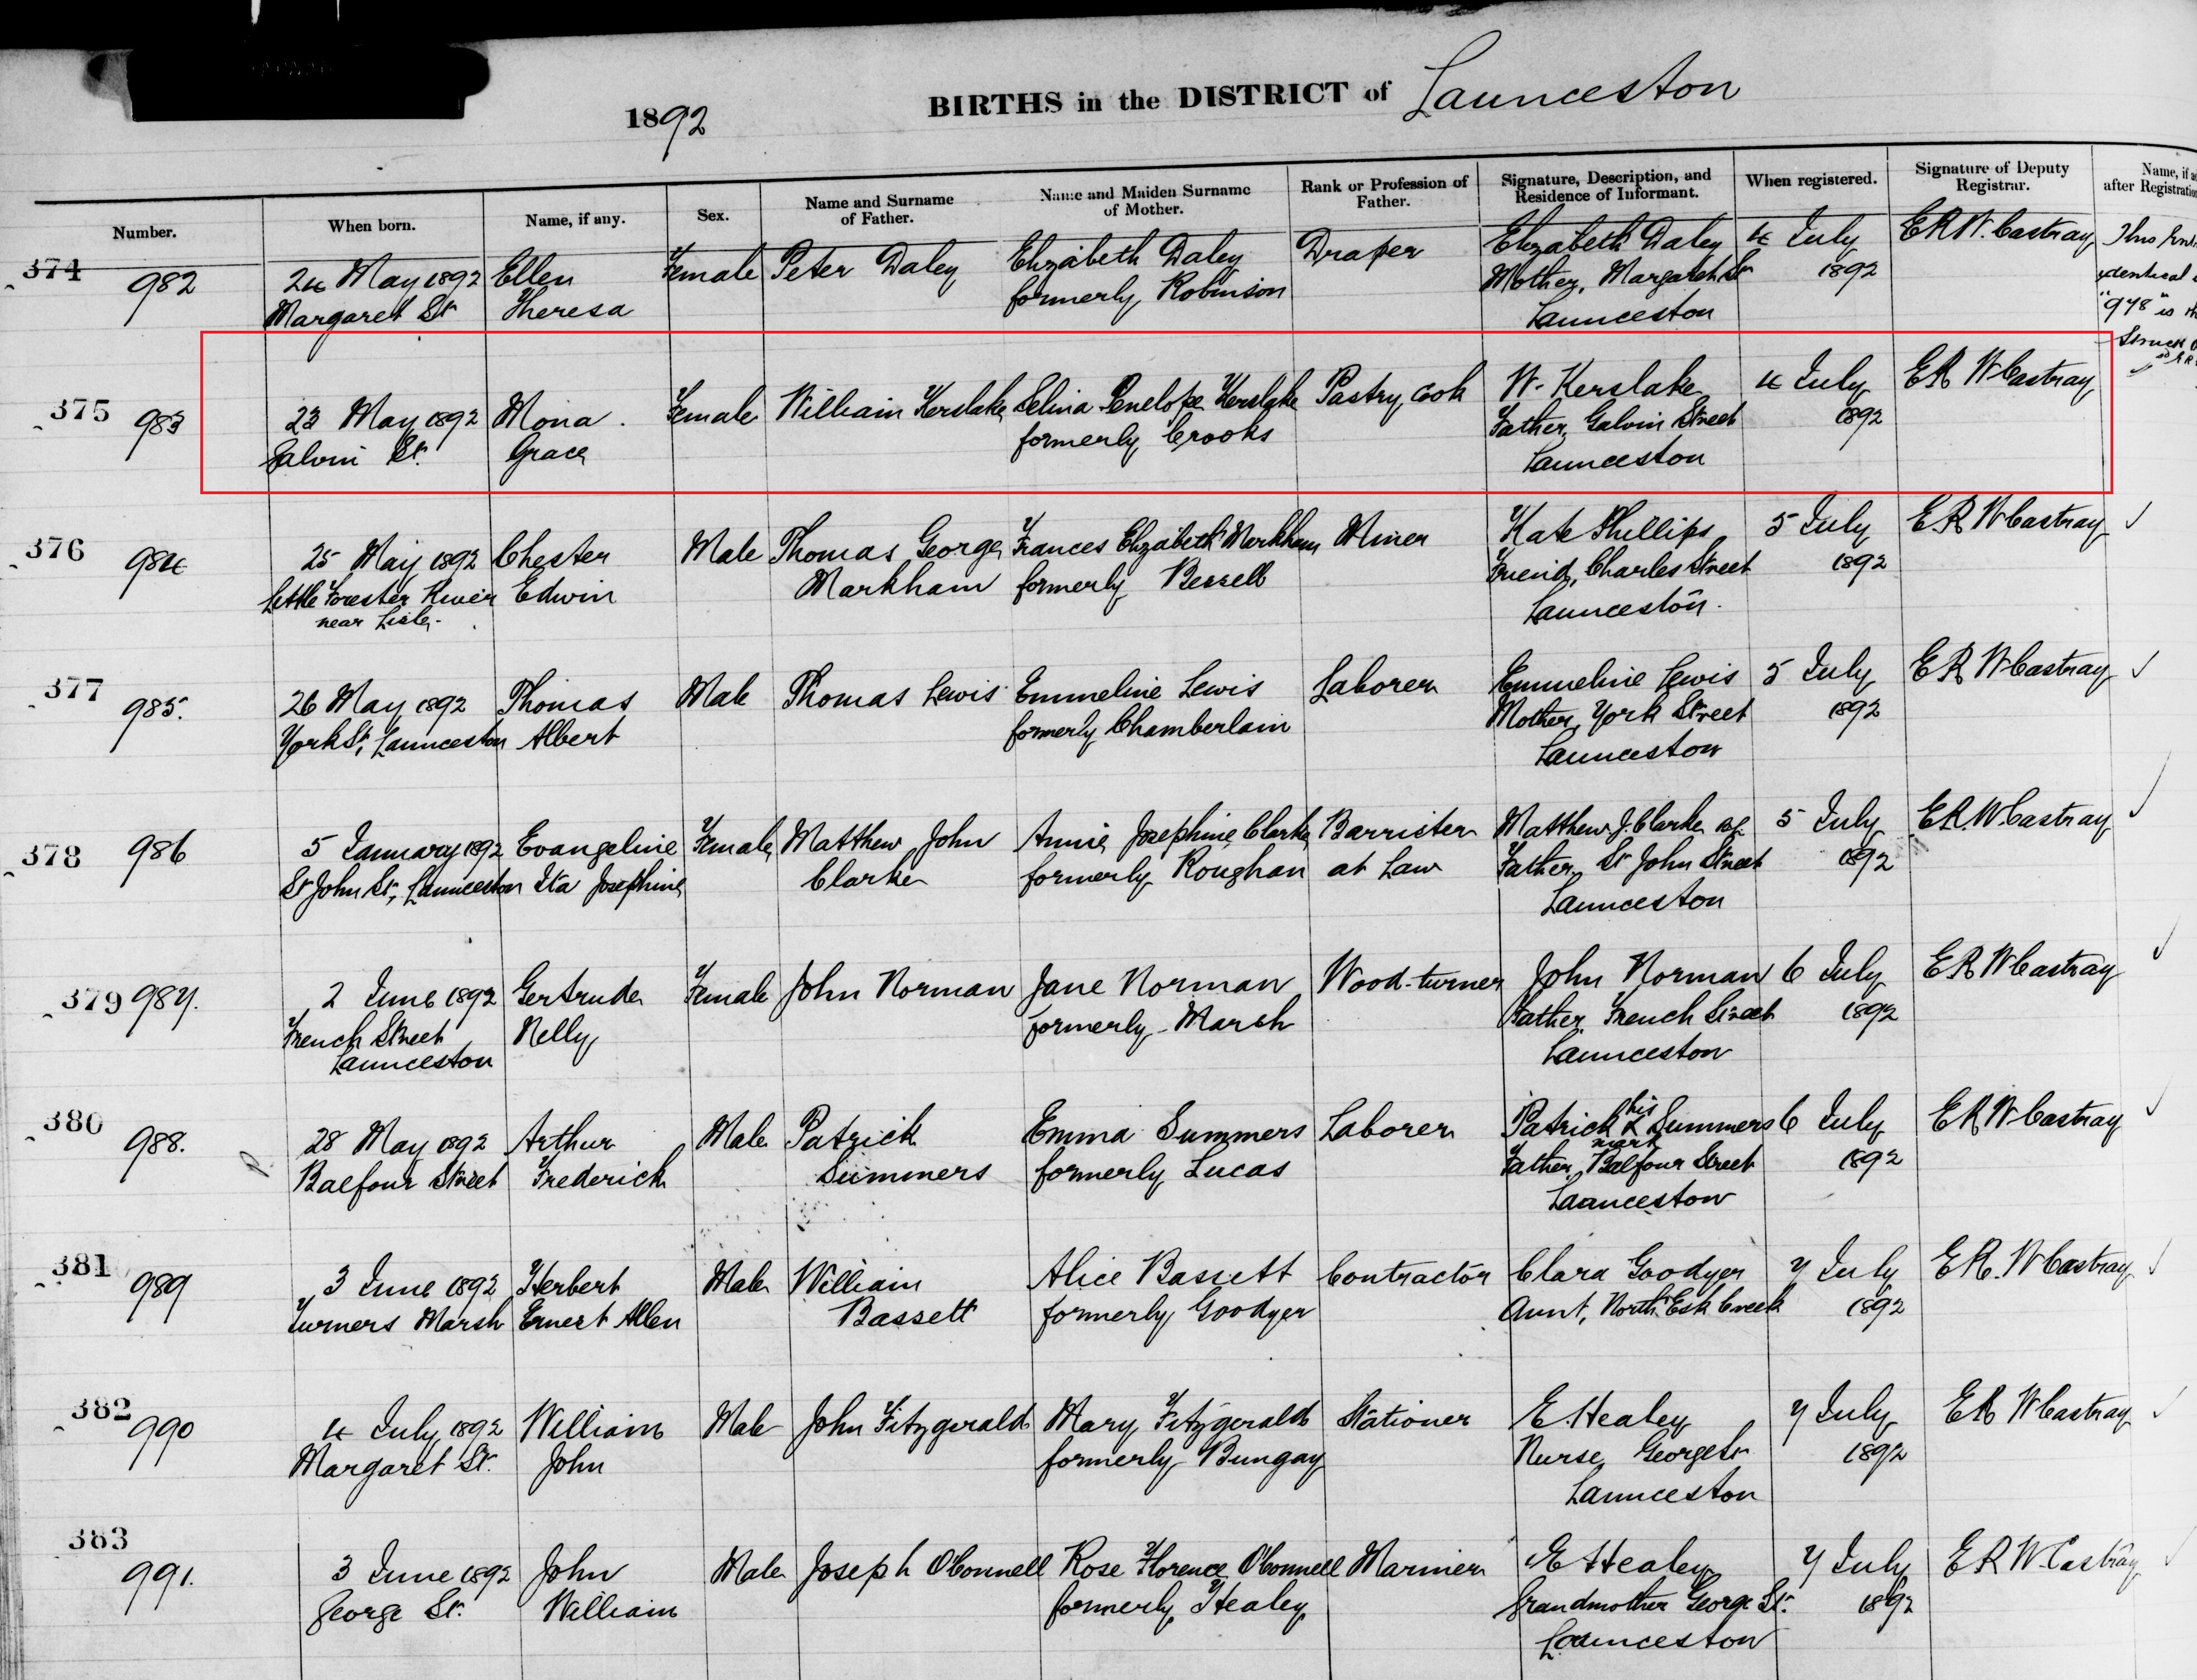 1892 BIRTHS in the DISTRICT of Launceston
Number. When born. Name, if any. Sex. Name and Surname of Father. Name and Maiden Surname of Mother. Rank or Profession of Father. Signature, Description, and Residence of Informant. When registered. Signature of Deputy Registrar. Name, if after Registration
374 982 24 May 1892 Ellen Female Peter Daley Elizabeth Daley Draper Elizabeth Daley 4 July E R W. Castray This
Margaret St Theresa formerly Robinson Mother, Margaret St 1892 identical
Launceston "978" is
Struck
375 983 23 May 1892 Mona. Female William Kerslake Selina Penelope Kerslake Pastry cook W. Kerslake 4 July E R W Castray
Galvin St. Grace formerly Crooks Father, Galvin Street 1892
Launceston
376 984 25 May 1892 Chester Male Thomas George Frances Elizabeth Markham Miner Kate Phillips 5 July E R W Castray
Little Forester River Edwin Markham formerly Bessell Friend, Charles Street 1892
near Lisle. Launceston.
377 985. 26 May 1892 Thomas Male Thomas Lewis Emmeline Lewis Laborer Emmeline Lewis 5 July E R W Castray
York St, Launceston Albert formerly Chamberlain Mother, York Street 1892
Launceston
378 986 5 January 1892 Evangeline Female Matthew John Annie Josephine Clarke Barrister Matthew J. Clarke 5 July E.R.W Castray
St John St, Launceston Ita Josephine Clarke formerly Roughan at Law Father, St John Street 1892
Launceston
379 987. 2 June 1892 Gertrude Female John Norman Jane Norman Wood-turner John Norman 6 July E R W Castray
French Street Nelly formerly Marsh Father, French Street 1892
Launceston Launceston
380 988. 28 May 1892 Arthur Male Patrick Emma Summers Laborer Patrick his x mark Summers 6 July E R W Castray
Balfour Street Frederick Summers formerly Lucas Father, Balfour Street 1892
Launceston
381 989 3 June 1892 Herbert Male William Alice Bassett Contractor Clara Goodyer 7 July E R. W Castray
Turners Marsh Ernest Allen Bassett formerly Goodyer Aunt, North Esk Creek 1892
382 990 4 July 1892 William Male John Fitzgerald Mary Fitzgerald Stationer E. Healey 7 July E R W Castray
Margaret St. John formerly Bungay Nurse, George St 1892
Launceston
383 991. 3 June 1892 John Male Joseph O'Connell Rose Florence O'Connell Mariner E Healey 7 July E R W. Castray
George St. William formerly Healey Grandmother George St. 1892
Launceston